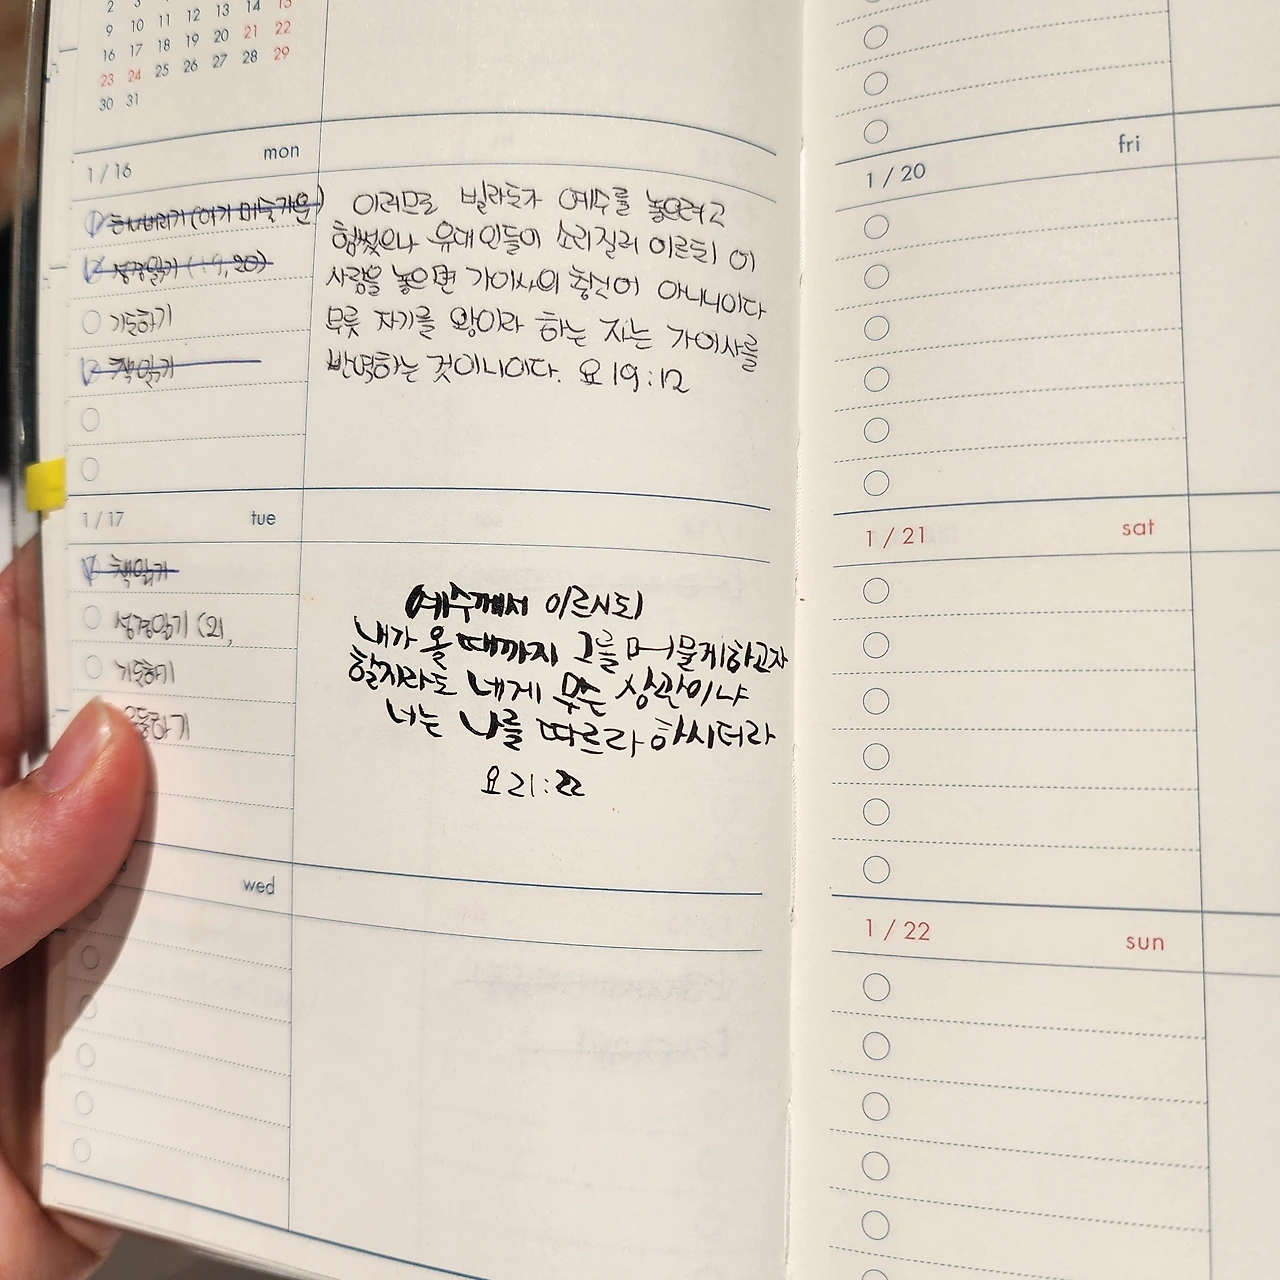 2 3 14 15
9 10 11 12 13 14 15
16 17 18 19 20 21 22
23 24 25 26 27 28 29
30 31
1 / 16 mon
성경읽기 (19, 20)
기도하기
책읽기
이러므로 빌라도가 예수를 놓으려고
힘썼으나 유대인들이 소리질러 이르되 이
사람을 놓으면 가이사의 충신이 아니니이다
무릇 자기를 왕이라 하는 자는 가이사를
반역하는 것이니이다. 요 19:12
1 / 17 tue
책읽기
성경읽기 (21,
기도하기
운동하기
예수께서 이르시되
내가 올 때까지 그를 머물게하고자
할지라도 네게 무슨 상관이냐
너는 나를 따르라 하시더라
요 21:22
wed
1 / 20 fri
1 / 21 sat
1 / 22 sun